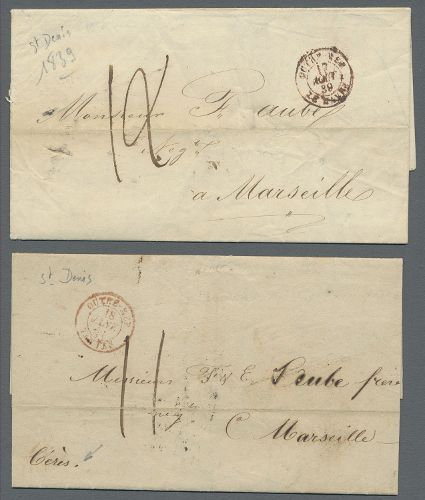 St Denis
1839
OUTRE MER
17
AOUT
39
LE HAVRE
12
Monsieur Fs. Aube
Negt
à Marseille
St Denis
OUTRE-MER
18
11
Messieurs Fs & E. Aube frères
neg
à Marseille
Cérès.